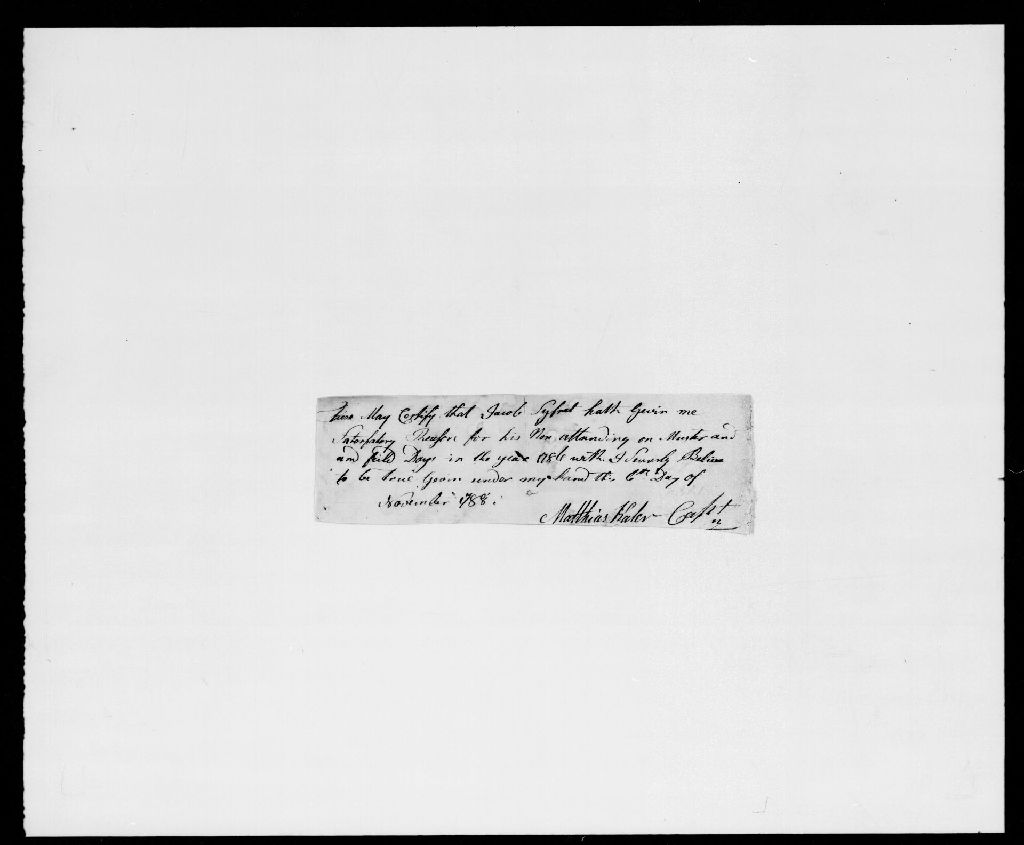 These May Certify that Jacob Syfret hath Gevin me
Satesfatory Reason for his Non attending on Muster and
and feild Days in the year 1786 with I Sencerly Beleive
to be true Geven under my hand this 6th Day of
November 1788.
Matthias Kaler Capt